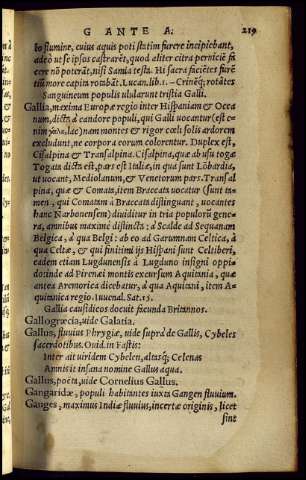 GANTE A. 219
lo flumine, cuius aquis poti statim furere incipiebant,
adeò ut se ipsos castrarēt, quod aliter citra perniciē fa
cere nō poterāt, nisi Samia testa. Hi sacra faciētes furē
tiū more capita rombāt. Lucan.lib.1. – Crinēq; rotātes
Sanguineum populis ulularunt tristia Galli.
Gallia, maxima Europæ regio inter Hispaniam & Ocea
num, dicta à candore populi, qui Galli uocantur (est e-
nim γάλα, lac) nam montes & rigor cœli solis ardorem
excludunt, ne corpora eorum colorentur. Duplex est,
Cisalpina & Transalpina. Cisalpina, quæ ab usu togæ
Togata dicta est, pars est Italiæ, in qua sunt Lōbardia,
ut uocant, Mediolanum, & Venetorum pars. Transal
pina, quæ & Comata, item Braccata uocatur (sunt ta-
men, qui Comatam à Braccata distinguant, uocantes
hanc Narbonensem) diuiditur in tria populorū gene-
ra, amnibus maximè distincta: à Scalde ad Sequanam
Belgica, à qua Belgi: ab eo ad Garumnam Celtica, à
qua Celtæ, & qui finitimi ijs Hispani sunt Celtiberi,
eadem etiam Lugdunensis à Lugduno insigni oppi-
do: inde ad Pirenæi montis excursum Aquitania, quæ
antea Aremorica dicebatur, à qua Aquitani, item A-
quitanica regio. Iuuenal. Sat.15.
Gallia causidicos docuit facunda Britannos.
Gallogrecia, uide Galatia.
Gallus, fluuius Phrygiæ, uide suprà de Gallis, Cybeles
sacerdotibus. Ouid. in Fastis:
Inter ait uiridem Cybelen, altasq; Celenas
Amnis it insana nomine Gallus aqua.
Gallus, poeta, uide Cornelius Gallus.
Gangaridæ, populi habitantes iuxta Gangen fluuium.
Ganges, maximus Indiæ fluuius, incertæ originis, licet
sint